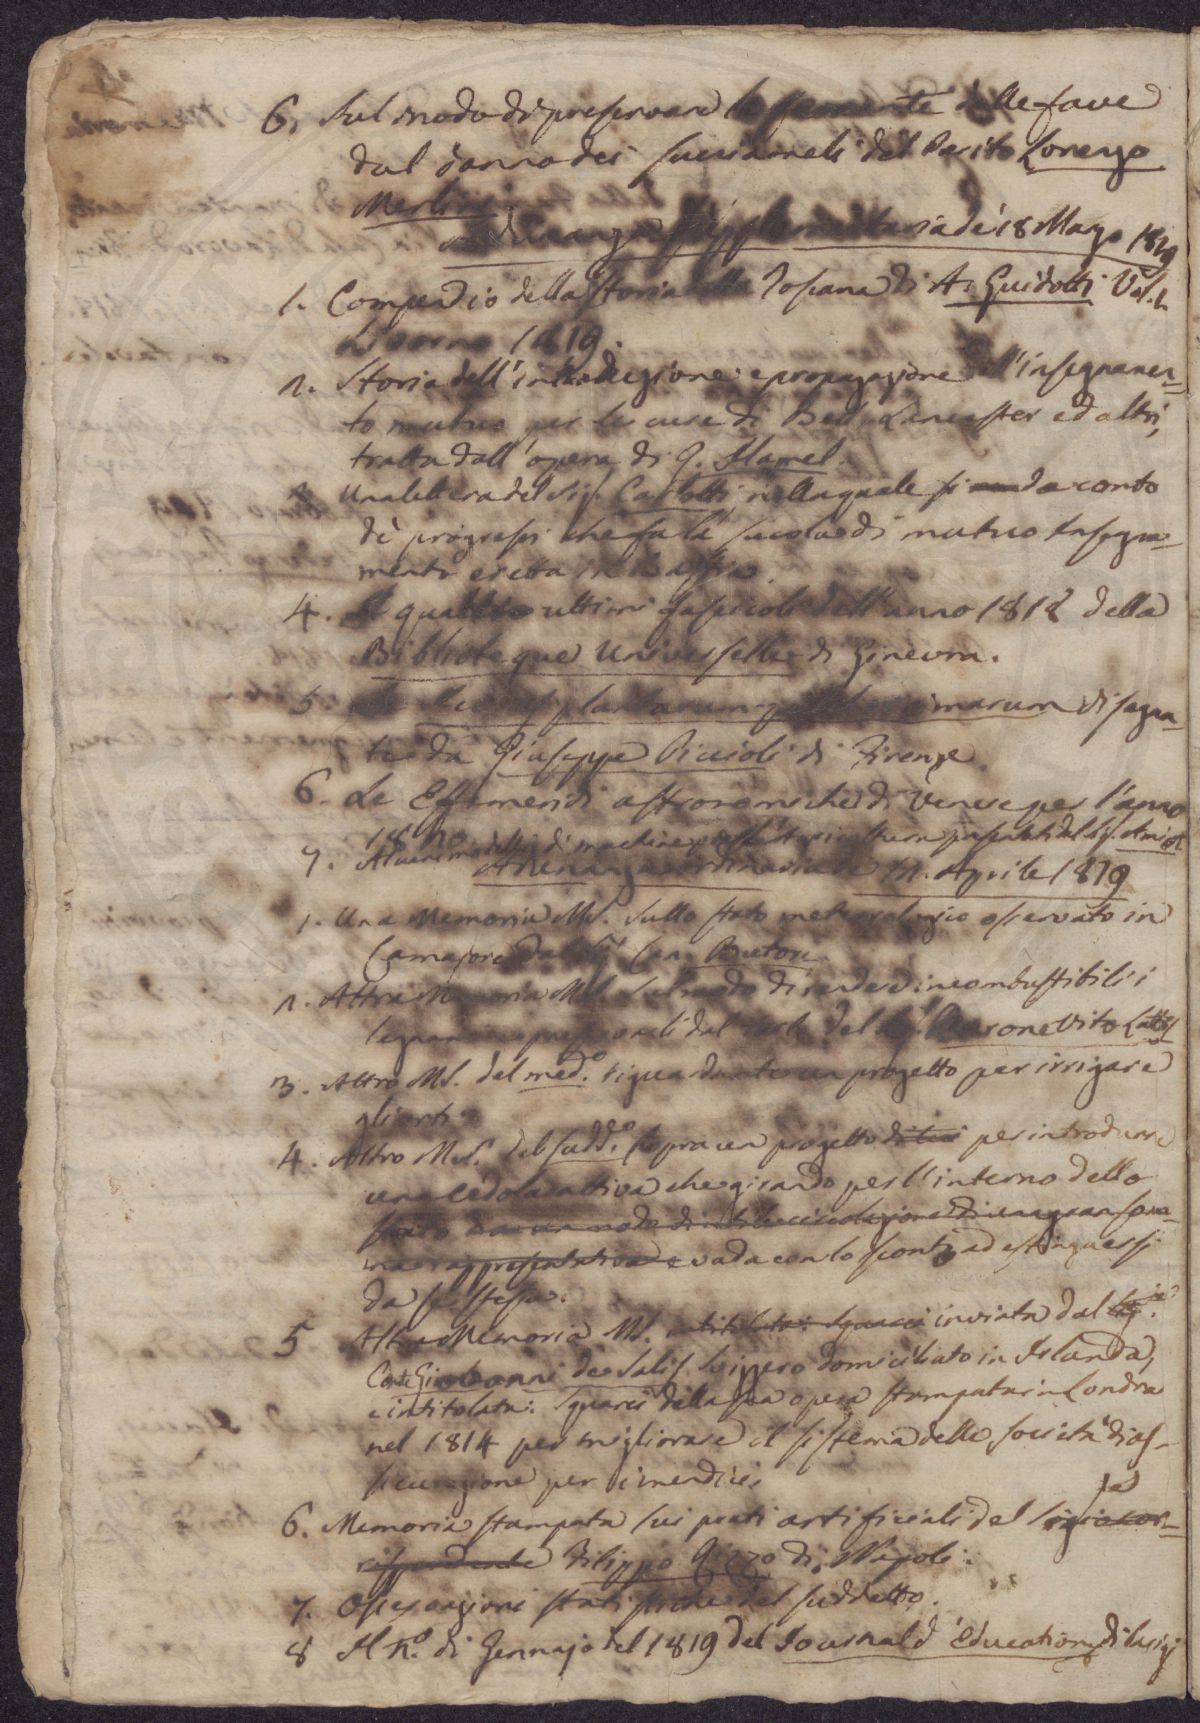 6. Sul modo di preservare la semente delle fave
dal danno dei succiameli del Perito Lorenzo
Merlini
Adunanza 18 Marzo 1819
1. Compendio della Storia della Toscana di A. Guidotti Vol.
Livorno 1819.
2. Storia dell'introduzione, e propagazione dell'insegnamen-
to mutuo per le cure di Bell, Lancaster ed altri,
tratta dall'opera di G. Hamel.
3 Una lettera del Sig. Carlotti, nella quale si dà conto
de' progressi che fa la scuola di mutuo Insegna-
mento eretta in
4. I quattro ultimi fascicoli dell'anno 1818 della
Biblioteque Universelle di Ginevra.
5. plantarum disegna-
te da Giuseppe Piccioli di Firenze.
6. Le Effemeridi astronomiche di Venere per l'anno
7. Alcuni modelli di macchine
Adunanza ordinaria de' Aprile 1819
1. Una Memoria MS. sullo stato meteorologico osservato in
Camajore dal Sig. Can. Butori.
2. Altra Memoria MS. sul modo di render incombustibili i
legnami del Barone Vito
3. Altro MS. del med.o riguardante un progetto per irrigare
gli orti.
4. Altro MS. del sudd.o sopra un progetto di per introdurre
una Cedola attiva che girando per l'interno dello
stato di una gran som-
ma rappresentativa e vada con lo sconto ad estinguersi
da se stessa.
5 Altra Memoria MS. intitolata: Squarci inviata dal Sig.
Conte Giovanni de Salis Svizzero domiciliato in Islanda,
e intitolata: Squarci della sua opera stampata in Londra
nel 1814 per migliorare il sistema delle società di as-
sicurazione per i
6. Memoria stampata sui prati artificiali del Sig. cor-
rispondente Filippo Rizzo di Napoli.
7. Osservazioni statistiche del suddetto.
8 Il N.o di Gennajo del 1819 del Journal d'Education di Parigi